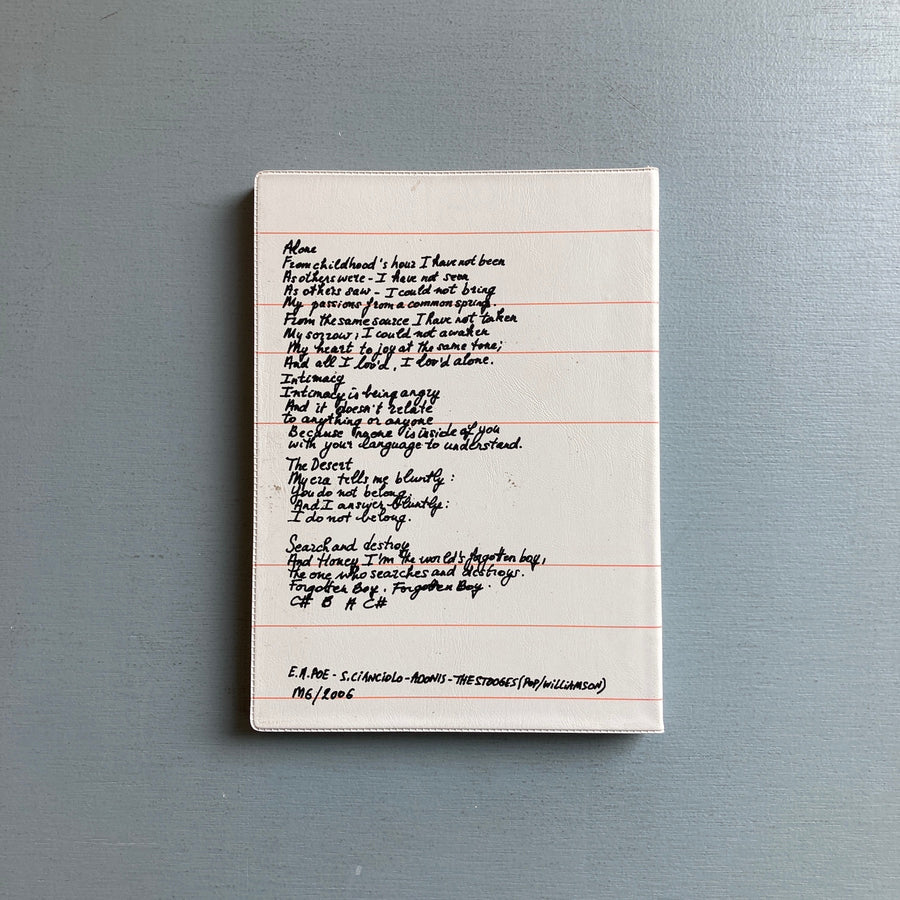 Alone
From childhood's hour I have not been
As others were - I have not seen
As others saw - I could not bring
My passions from a common spring.
From the same source I have not taken
My sorrow, I could not awaken
My heart to joy at the same tone;
And all I lov'd, I lov'd alone.
Intimacy
Intimacy is being angry
And it doesn't relate
to anything or anyone
Because noone is inside of you
with your language to understand.
The Desert
My era tells me bluntly:
You do not belong.
And I answer bluntly:
I do not belong.
Search and destroy
And Honey I'm the world's forgotten boy,
the one who searches and destroys.
Forgotten Boy. Forgotten Boy.
C# B A C#
E.A.POE - S.CIANCIOLO - ADONIS - THE STOOGES (POP/WILLIAMSON)
MG/2006